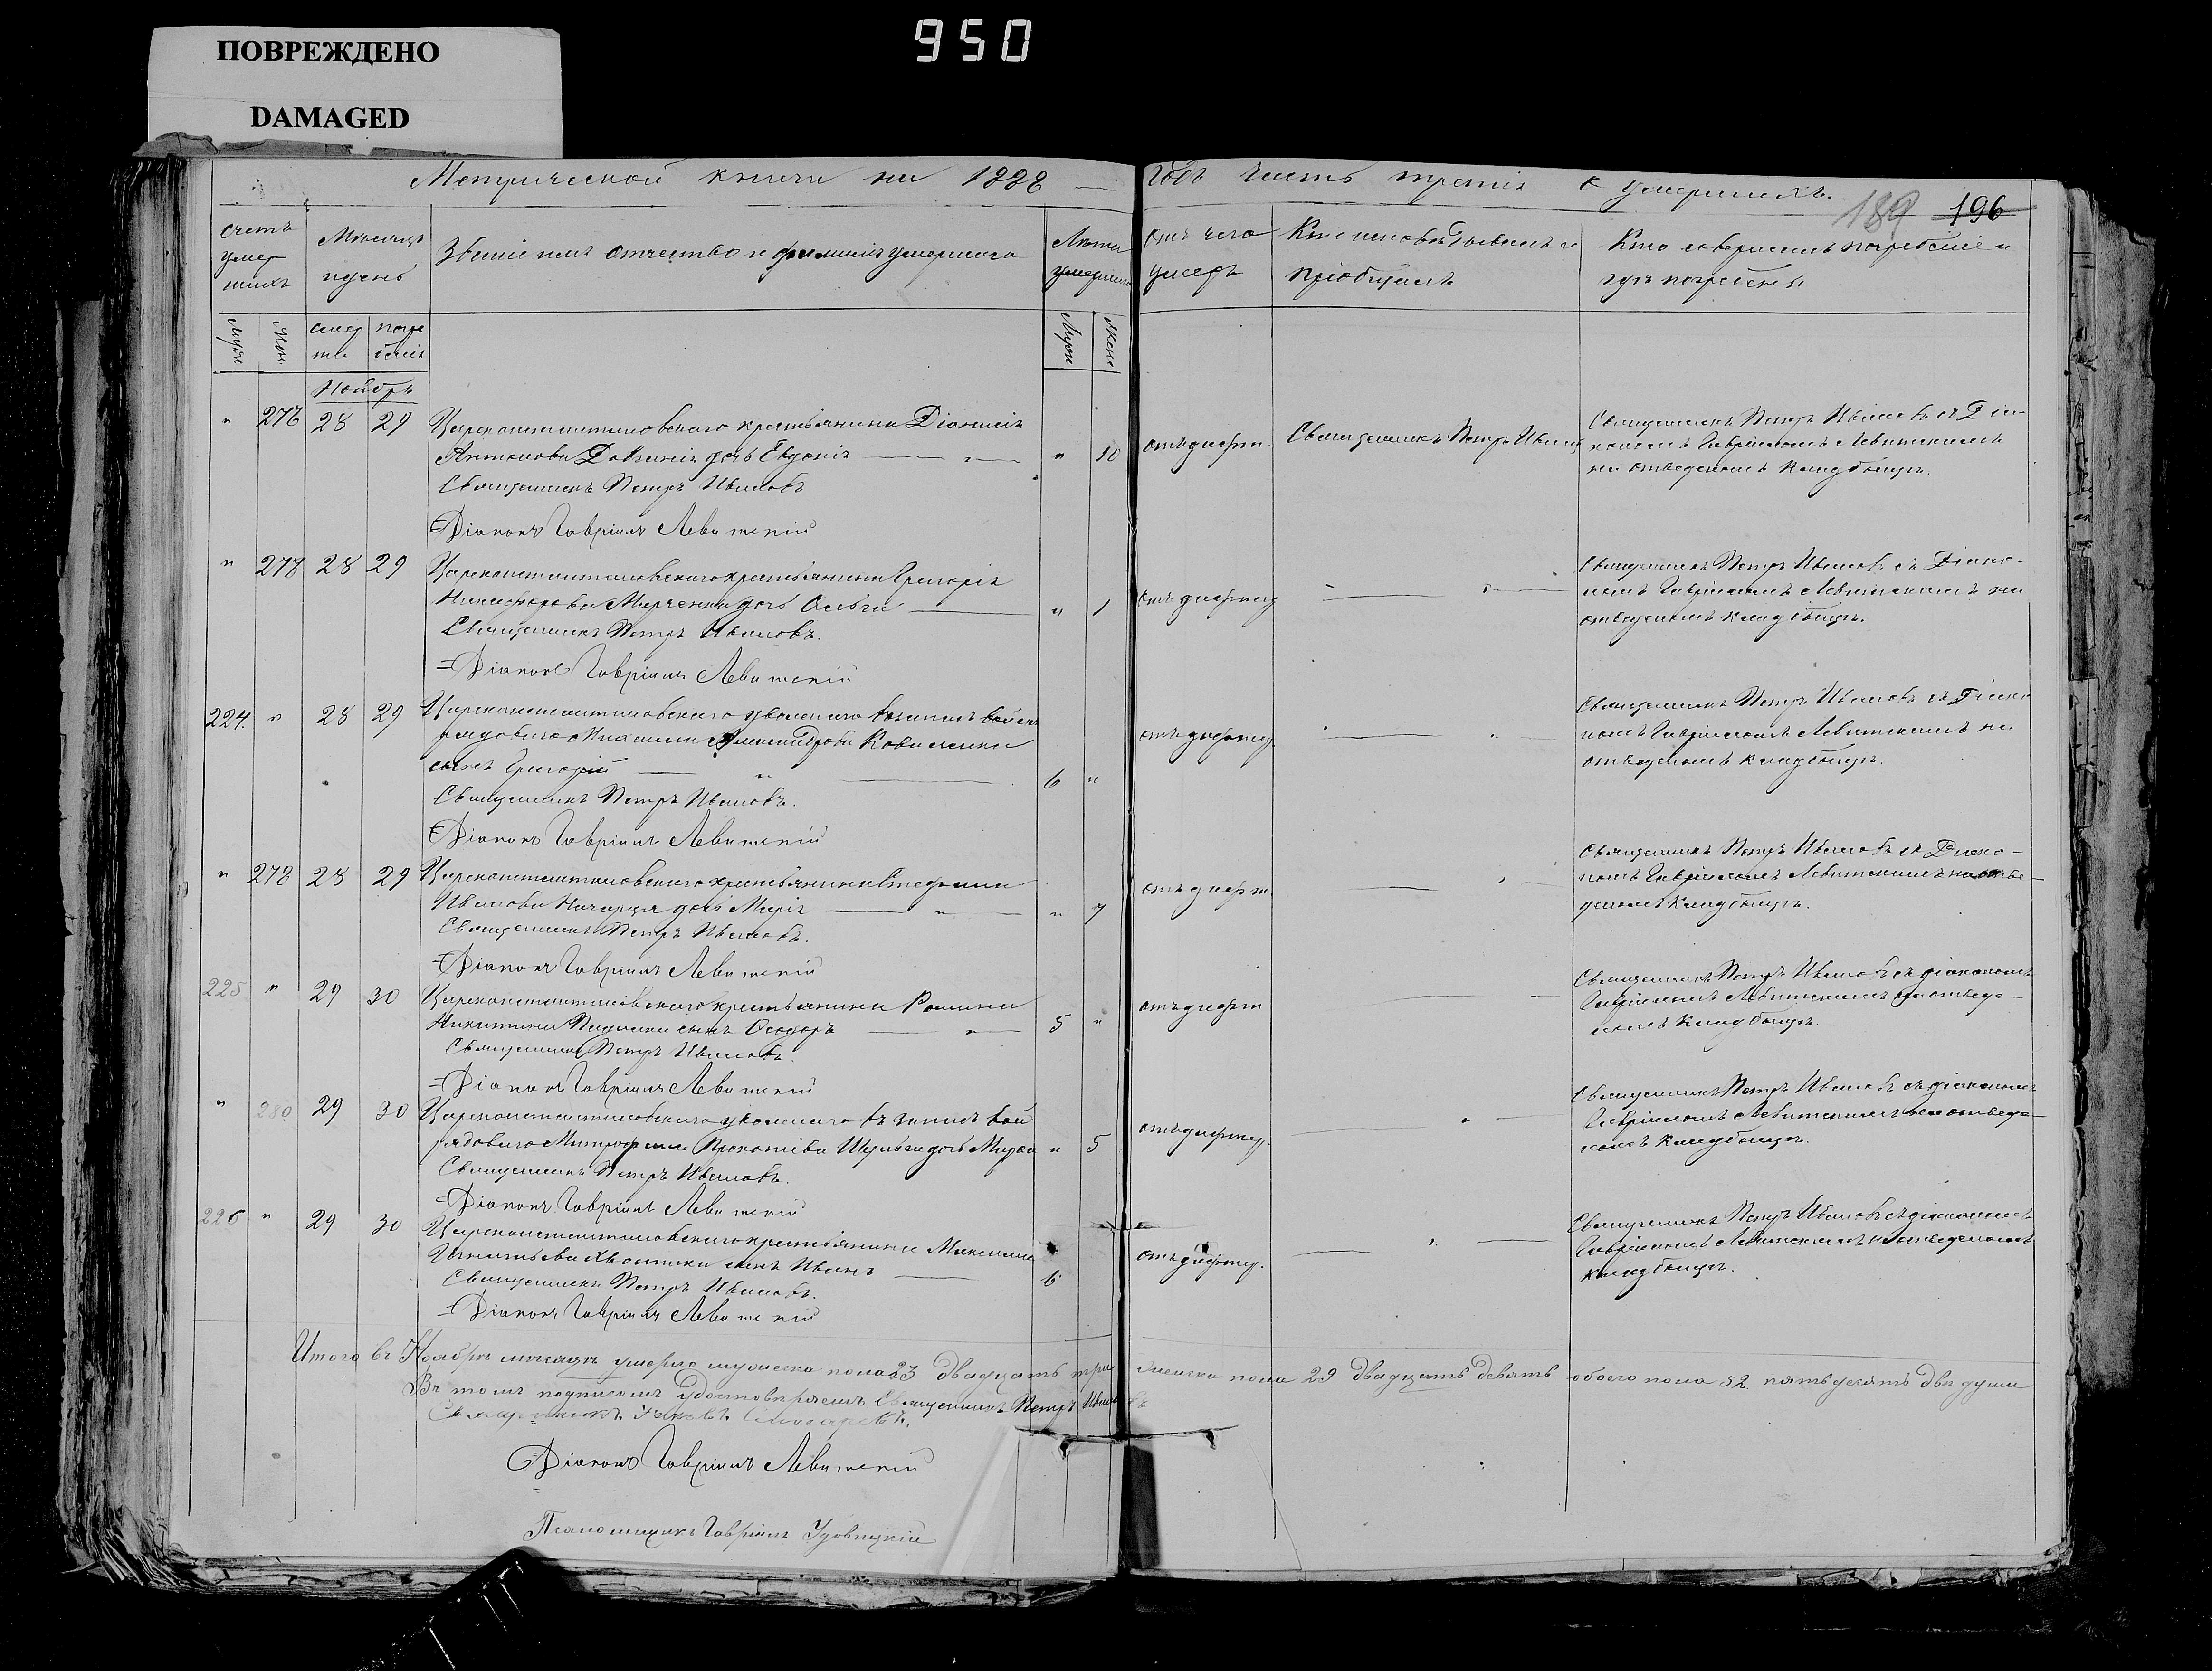 950
ПОВРЕЖДЕНО
DAMAGED
Метрической книги на 1888
Годъ часть третія о умершихъ.
189 196
Счетъ умер шихъ
Мѣсяцъ и день
Званіе имя отчество и фамилія умершаго
Лѣта умершаго
отъ чего умеръ
Кто исповѣдывалъ и пріобщалъ
Кто совершалъ погребеніе и гдѣ погребены
Муж. Жен. смер ти погре бенія Муж Жен
Ноябрь
" 276 28 29 Цареконстантиновскаго крестьянина Діонисія
Антонова дочь Евдокія " 10 отъ дифт. Священникъ Петръ Ивановъ
Священникъ Петръ Ивановъ съ Діа-
кономъ Гавріиломъ Левитскимъ
на отведеномъ кладбищѣ.
Священникъ Петръ Ивановъ
Діаконъ Гавріилъ Левитскій
" 278 28 29 Цареконстантиновскаго крестьянина Григорія
Никифорова Марченка дочь Ольга " 1 отъ дифтер
Священникъ Петръ Ивановъ съ Діако-
номъ Гавріиломъ Левитскимъ на
отведеномъ кладбищѣ.
Священникъ Петръ Ивановъ.
Діаконъ Гавріилъ Левитскій
224. " 28 29 Цареконстантиновскаго уволенаго въ запасъ войскъ
рядоваго Михаила Коваленка
сынъ Григорій 6 " отъ дифтер.
Священникъ Петръ Ивановъ съ Діако
номъ Гавріиломъ Левитскимъ на
отведеномъ кладбищѣ.
Священникъ Петръ Ивановъ.
Діаконъ Гавріилъ Левитскій
" 278 28 29 Цареконстантиновскаго крестьянина Стефана
Иванова дочь Марія " 7 отъ дифт.
Священникъ Петръ Ивановъ съ Діако-
номъ Гавріиломъ Левитскимъ на отве-
деномъ кладбищѣ.
Священникъ Петръ Ивановъ.
Діаконъ Гавріилъ Левитскій
225 " 29 30 Цареконстантиновскаго крестьянина Романа
Никитина сынъ Ѳеодоръ 5 " отъ дифт
Священникъ Петръ Ивановъ съ діакономъ
Гавріиломъ Левитскимъ на отведе-
номъ кладбищѣ.
Священникъ Петръ Ивановъ.
Діаконъ Гавріилъ Левитскій
" 280 29 30 Цареконстантиновскаго уволенаго въ запасъ вой
рядоваго Митрофана Прокопіева дочь " 5 отъ дифтер.
Священникъ Петръ Ивановъ съ діакономъ
Гавріиломъ Левитскимъ на отведе-
номъ кладбищѣ.
Священникъ Петръ Ивановъ.
Діаконъ Гавріилъ Левитскій
226 " 29 30 Цареконстантиновскаго крестьянина Максима
Игнатьева Хвостика сынъ Иванъ 6 отъ дифтер.
Священникъ Петръ Ивановъ съ діакономъ
Гавріиломъ Левитскимъ на отведеномъ
кладбищѣ.
Священникъ Петръ Ивановъ.
Діаконъ Гавріилъ Левитскій
Итого въ Ноябрѣ мѣсяцѣ умерло мужеска пола 23 двадцать три женска пола 29 двадцать девять обоего пола 52 пятьдесятъ двѣ души
Въ томъ подписомъ удостовѣряемъ Священникъ Петръ Ивановъ
Священникъ
Діаконъ Гавріилъ Левитскій
Псаломщикъ Гавріилъ Удовицкій